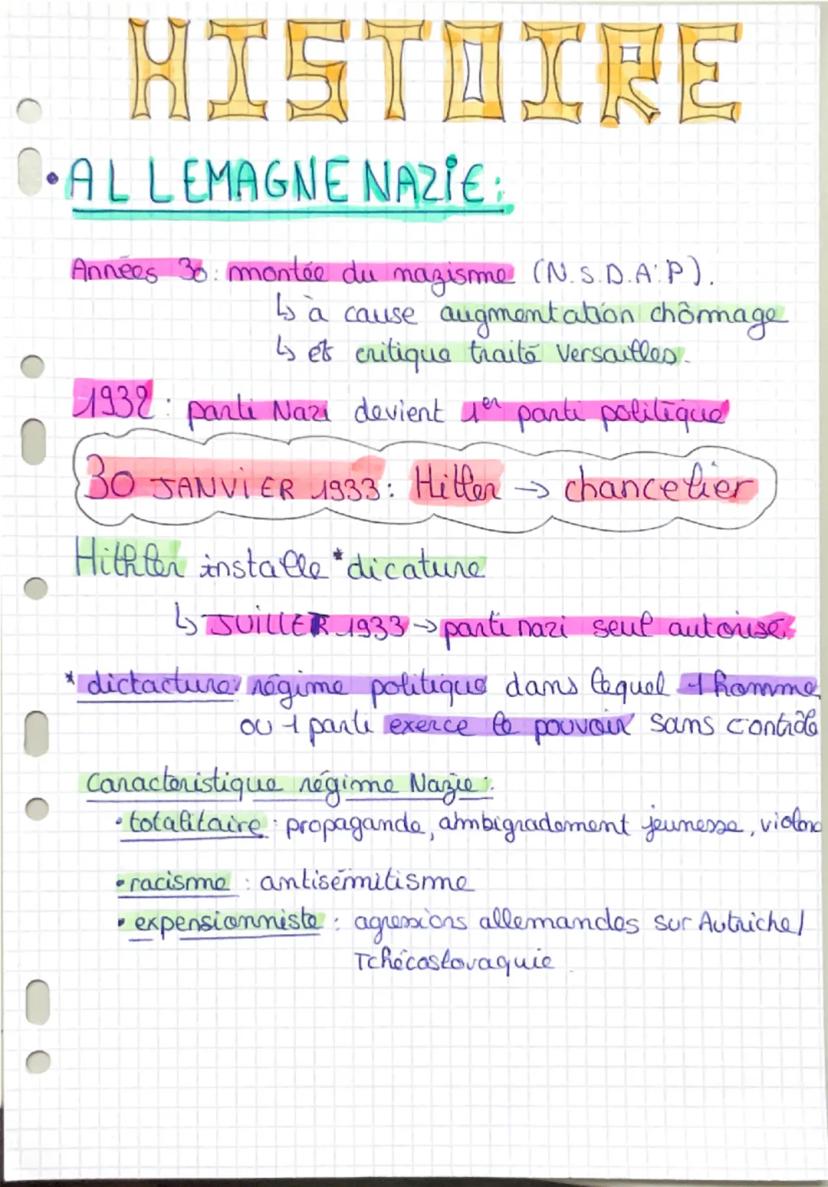 HISTOIRE
• ALLEMAGNE NAZIE:
Années 30: montée du nazisme (N.S.D.A.P).
↳ à cause augmentation chômage
↳ et critique traité Versailles.
1932 : parti Nazi devient 1er parti politique
30 JANVIER 1933: Hitler → chancelier
Hithler installe *dicature
↳ JUILLER 1933 → parti nazi seul autorisé
* dictacture: régime politique dans lequel 1 homme
ou 1 parti exerce le pouvoir sans contrôle
Caracteristique régime Nazie:
• totalitaire : propagande, ambigradement jeunesse, violence
• racisme : antisémitisme
• expensionniste : agressions allemandes sur Autriche/
Tchécoslovaquie